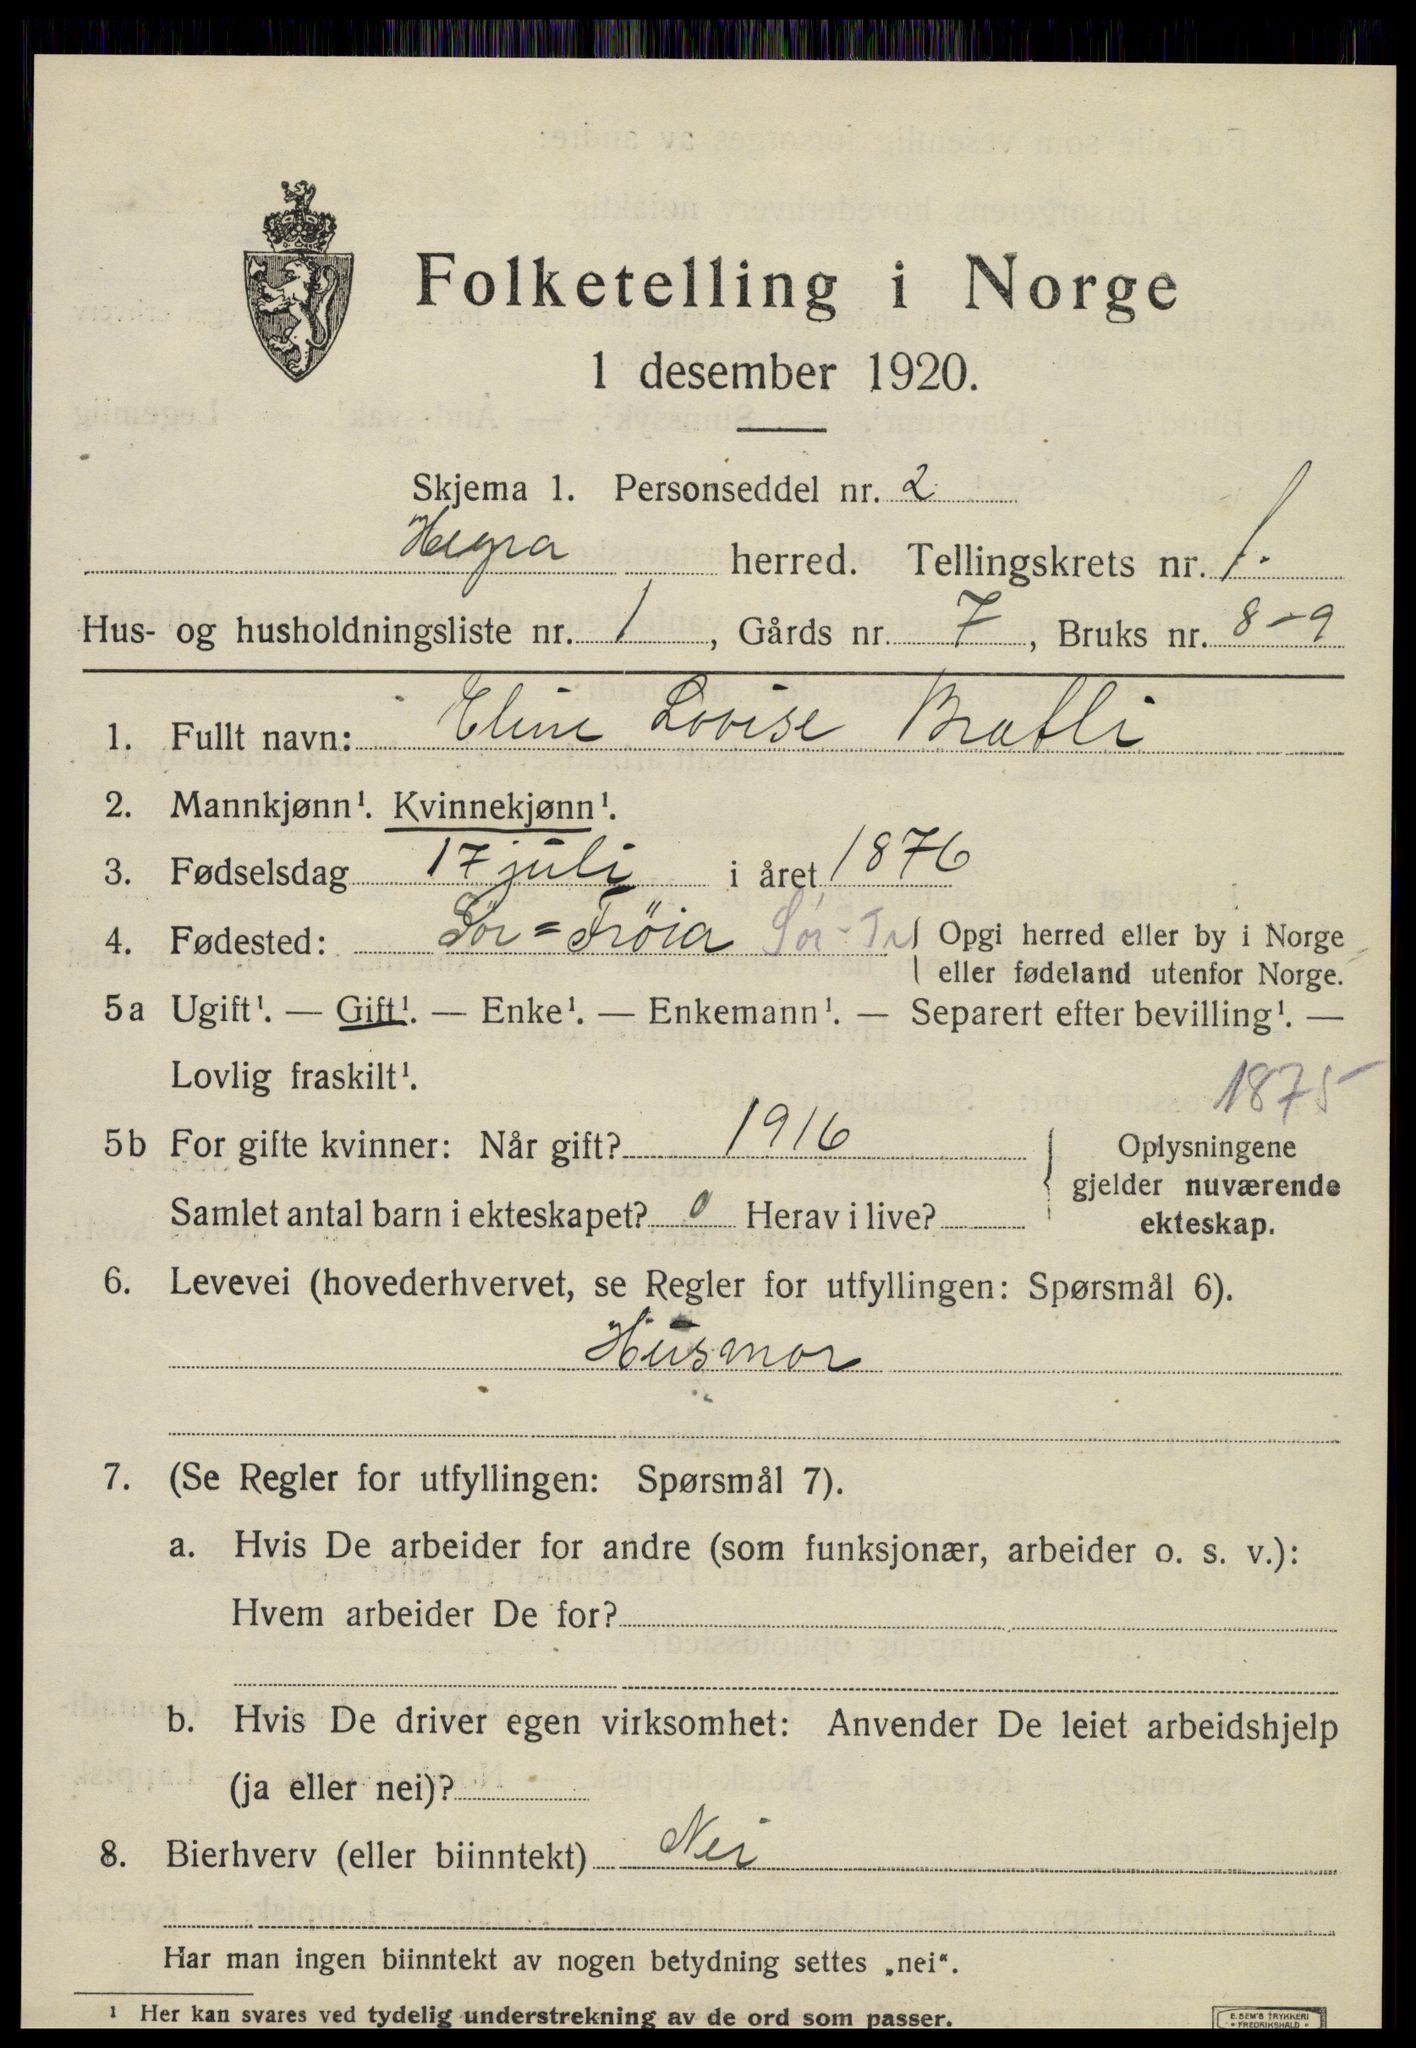 Folketelling i Norge
1 desember 1920.
Skjema 1. Personseddel nr. 2
Hegra herred. Tellingskrets nr. 1.
Hus- og husholdningsliste nr. 1, Gårds nr. 7, Bruks nr. 8-9
1. Fullt navn: Eline Lovise Bratli
2. Mannkjønn¹. Kvinnekjønn¹.
3. Fødselsdag 17 juli i året 1876
4. Fødested: Sør=Frøia Sør-Tr { Opgi herred eller by i Norge
eller fødeland utenfor Norge.
5a Ugift¹. — Gift¹. — Enke¹. — Enkemann¹. — Separert efter bevilling¹. —
Lovlig fraskilt¹.
1875
5b For gifte kvinner: Når gift? 1916
Samlet antal barn i ekteskapet? 0 Herav i live?
Oplysningene
gjelder nuværende
ekteskap.
6. Levevei (hovederhvervet, se Regler for utfyllingen: Spørsmål 6).
Husmor
7. (Se Regler for utfyllingen: Spørsmål 7).
a. Hvis De arbeider for andre (som funksjonær, arbeider o. s. v.):
Hvem arbeider De for?
b. Hvis De driver egen virksomhet: Anvender De leiet arbeidshjelp
(ja eller nei)?
8. Bierhverv (eller biinntekt) Nei
Har man ingen biinntekt av nogen betydning settes „nei“.
¹ Her kan svares ved tydelig understrekning av de ord som passer.
E. SEM'S TRYKKERI
• FREDRIKSHALD •